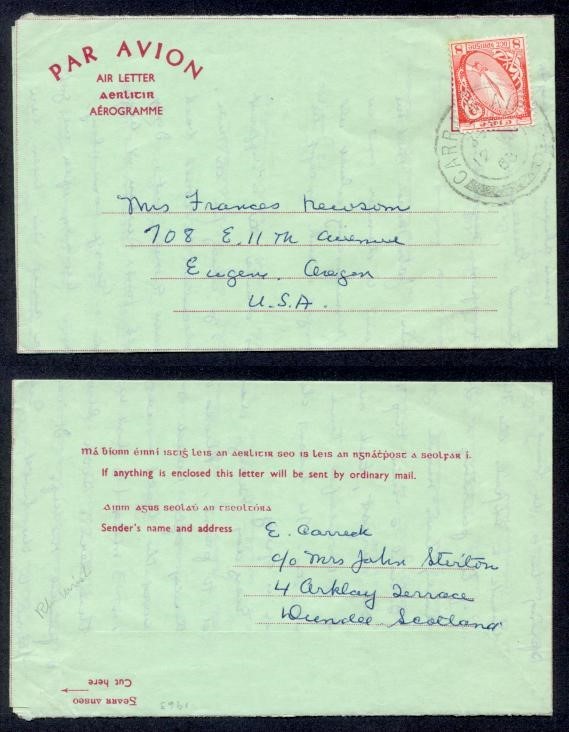 PAR AVION
AIR LETTER
aerlitir
AÉROGRAMME
8 8
CARR
Mrs Frances Newsom
708 E. 11 TH Avenue
Eugene. Oregon
U.S.A.
má ḃíonn éinní istiġ leis an aerlitir seo is leis an ngnáṫṗost a seolfar í.
If anything is enclosed this letter will be sent by ordinary mail.
ainm agus seolaḋ an tseoltóra
Sender's name and address
E. Carreck
c/o Mrs John Stirton
4 Arklay Terrace
Dundee Scotland
Gearr anseo
Cut here
1963